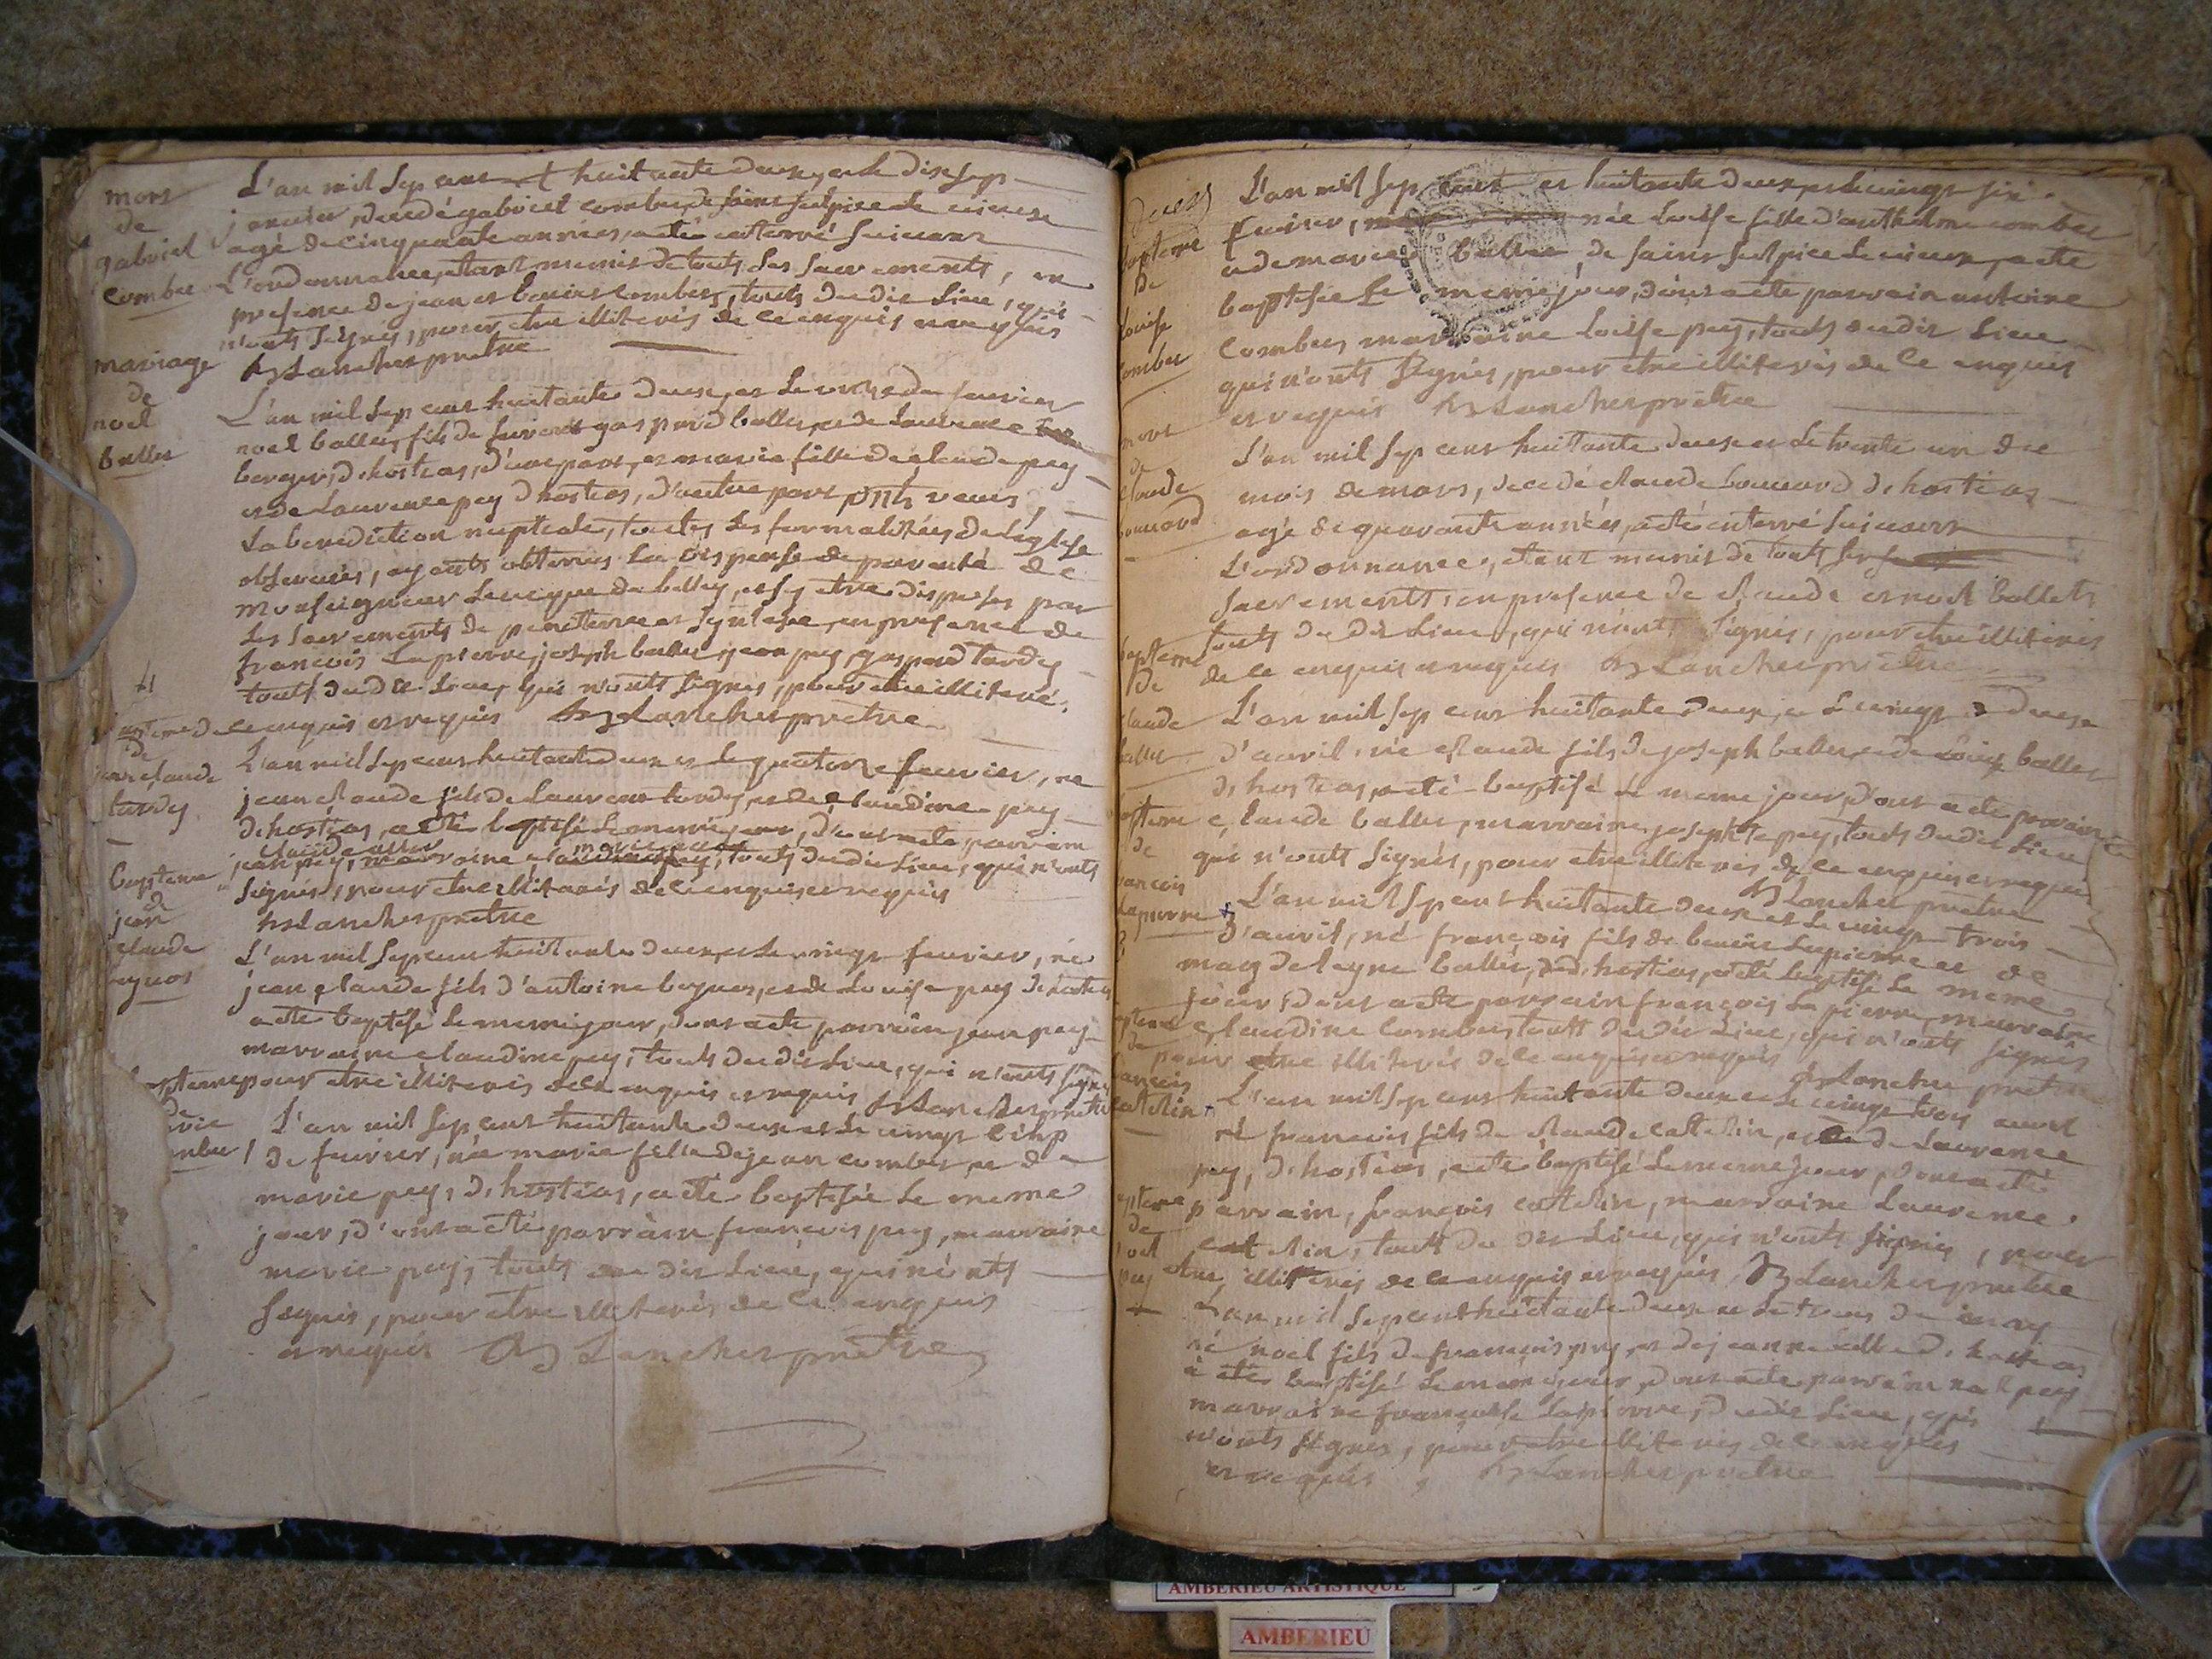 mort
de
gabriel
combes
L'an mil sept cent huitante deux, et le dix sept
janvier, decedé gabriel combes, de saint sulpice le vieux
agé de cinquante années, a été enterré suivant
L'ordonnance, etant munis de touts les sacrements, en
presence de jean et benoit combes, touts dudit lieu, qui
n'onts signés, pour etre illiterés de ce enquis requis
Lancher pretre
mariage
de
noel
ballet
L'an mil sept cent huitante deux, et le onze de fevrier
noel ballet, fils de gaspard ballet, et de laurence
berger, d'hostias, d'une part, et marie fille de claude pey
et de Laurence pey d'hostias, d'autre part
La benediction nuptiale, toutes les formalitées de L'eglise
observées, ayants obtenus La dispense de parenté de
Monseigneur L'eveque de belley, et s'y etre disposés par
Les sacrements de penitence et, en presence de
francois Lapierre, joseph ballet, jean pey, gaspard tardy
touts dudit Lieu, qui n'onts signés, pour etre illiterés
de ce enquis et requis Lancher pretre
de
jean claude
tardy
L'an mil sept cent huitante deux et le quatorze fevrier, né
jean claude fils de Laurent tardy, et de claudine pey
d'hostias, a été baptisé Le meme jour, dont a été parrain
jean pey, marraine, touts dudit Lieu, qui n'onts
signés, pour etre illiterés de ce enquis et requis
Lancher pretre
bapteme
de
jean
claude
L'an mil sept cent huitante deux, et le vingt fevrier, né
jean claude fils d'antoine, et de Louise pey d'hostias
a été baptisé Le meme jour, dont a été parrain jean pey
marraine claudine pey, touts dudit Lieu, qui n'onts signés
pour etre illiterés de ce enquis et requis Lancher pretre
L'an mil sept cent huitante deux et le vingt cinq
de fevrier, née marie fille de jean combes, et de
marie pey, d'hostias, a été baptisée Le meme
jour, d'ont a été parrain francois pey, marraine
marie pey, touts dudit Lieu, qui n'onts
signés, pour etre illiterés de ce enquis
et requis Lancher pretre
bapteme
de
Louise
combes
L'an mil sept cent et huitante deux et le vingt six
fevrier, née Louise fille d'anthelme combes
et de marie ballet, de saint sulpice le vieux, a été
baptisée Le meme jour, dont a été parrain antoine
combes marraine Louise pey, touts dudit Lieu
qui n'onts signés, pour etre illiterés de ce enquis
et requis Lancher pretre
mort
de
claude
L'an mil sept cent huitante deux et le trente un du
mois de mars, decedé claude d'hostias
agé de quarante années, a été enterré suivant
L'ordonnance, etant munis de touts ses
sacrements, en presence de claude et noel ballets
touts du dit Lieu, qui n'onts signés, pour etre illiterés
de ce enquis et requis Lancher pretre
bapteme
de
claude
ballet
L'an mil sept cent huitante deux, et le vingt deux
d'avril, né claude fils de joseph ballet, et de ballet
d'hostias, a été baptisé Le meme jour, dont a été parrain
claude ballet, marraine josephte pey, touts dudit Lieu
qui n'onts signés, pour etre illiterés de ce enquis et requis
Lancher pretre
bapteme
de
francois
lapierre
L'an mil sept cent huitante deux et le vingt trois
d'avril, né francois fils de benoit Lapierre et de
magdelayne ballet, d'hostias, a été baptisé Le meme
jour, dont a été parrain francois Lapierre, marraine
claudine combes, touts dudit Lieu, qui n'onts signés
pour etre illiterés de ce enquis et requis
Lancher pretre
de
francois
catelin
L'an mil sept cent huitante deux et le vingt trois avril
né francois fils de claude catelin, et de Laurence
pey, d'hostias, a été baptisé Le meme jour, dont a été
parrain, francois catelin, marraine Laurence
catelin, touts du dit Lieu, qui n'onts signés, pour
etre illiterés de ce enquis et requis, Lancher pretre
bapteme
de
noel
pey
L'an mil sept cent huitante deux et le trois de may
né noel fils de francois pey, et de jeanne d'hostias
a été baptisé Le meme jour, dont a été parrain noel pey
marraine francoise Lapierre, dudit Lieu, qui
n'onts signés, pour etre illiterés de ce enquis
et requis, Lancher pretre
AMBERIEU ARTISTIQUE
AMBERIEU